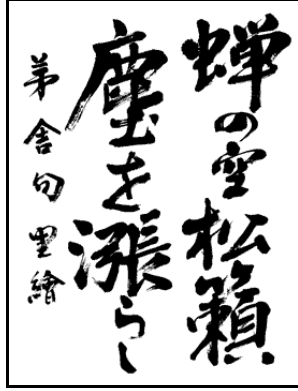 蝉の空松籟
塵を漲らし
茅舎句里繪